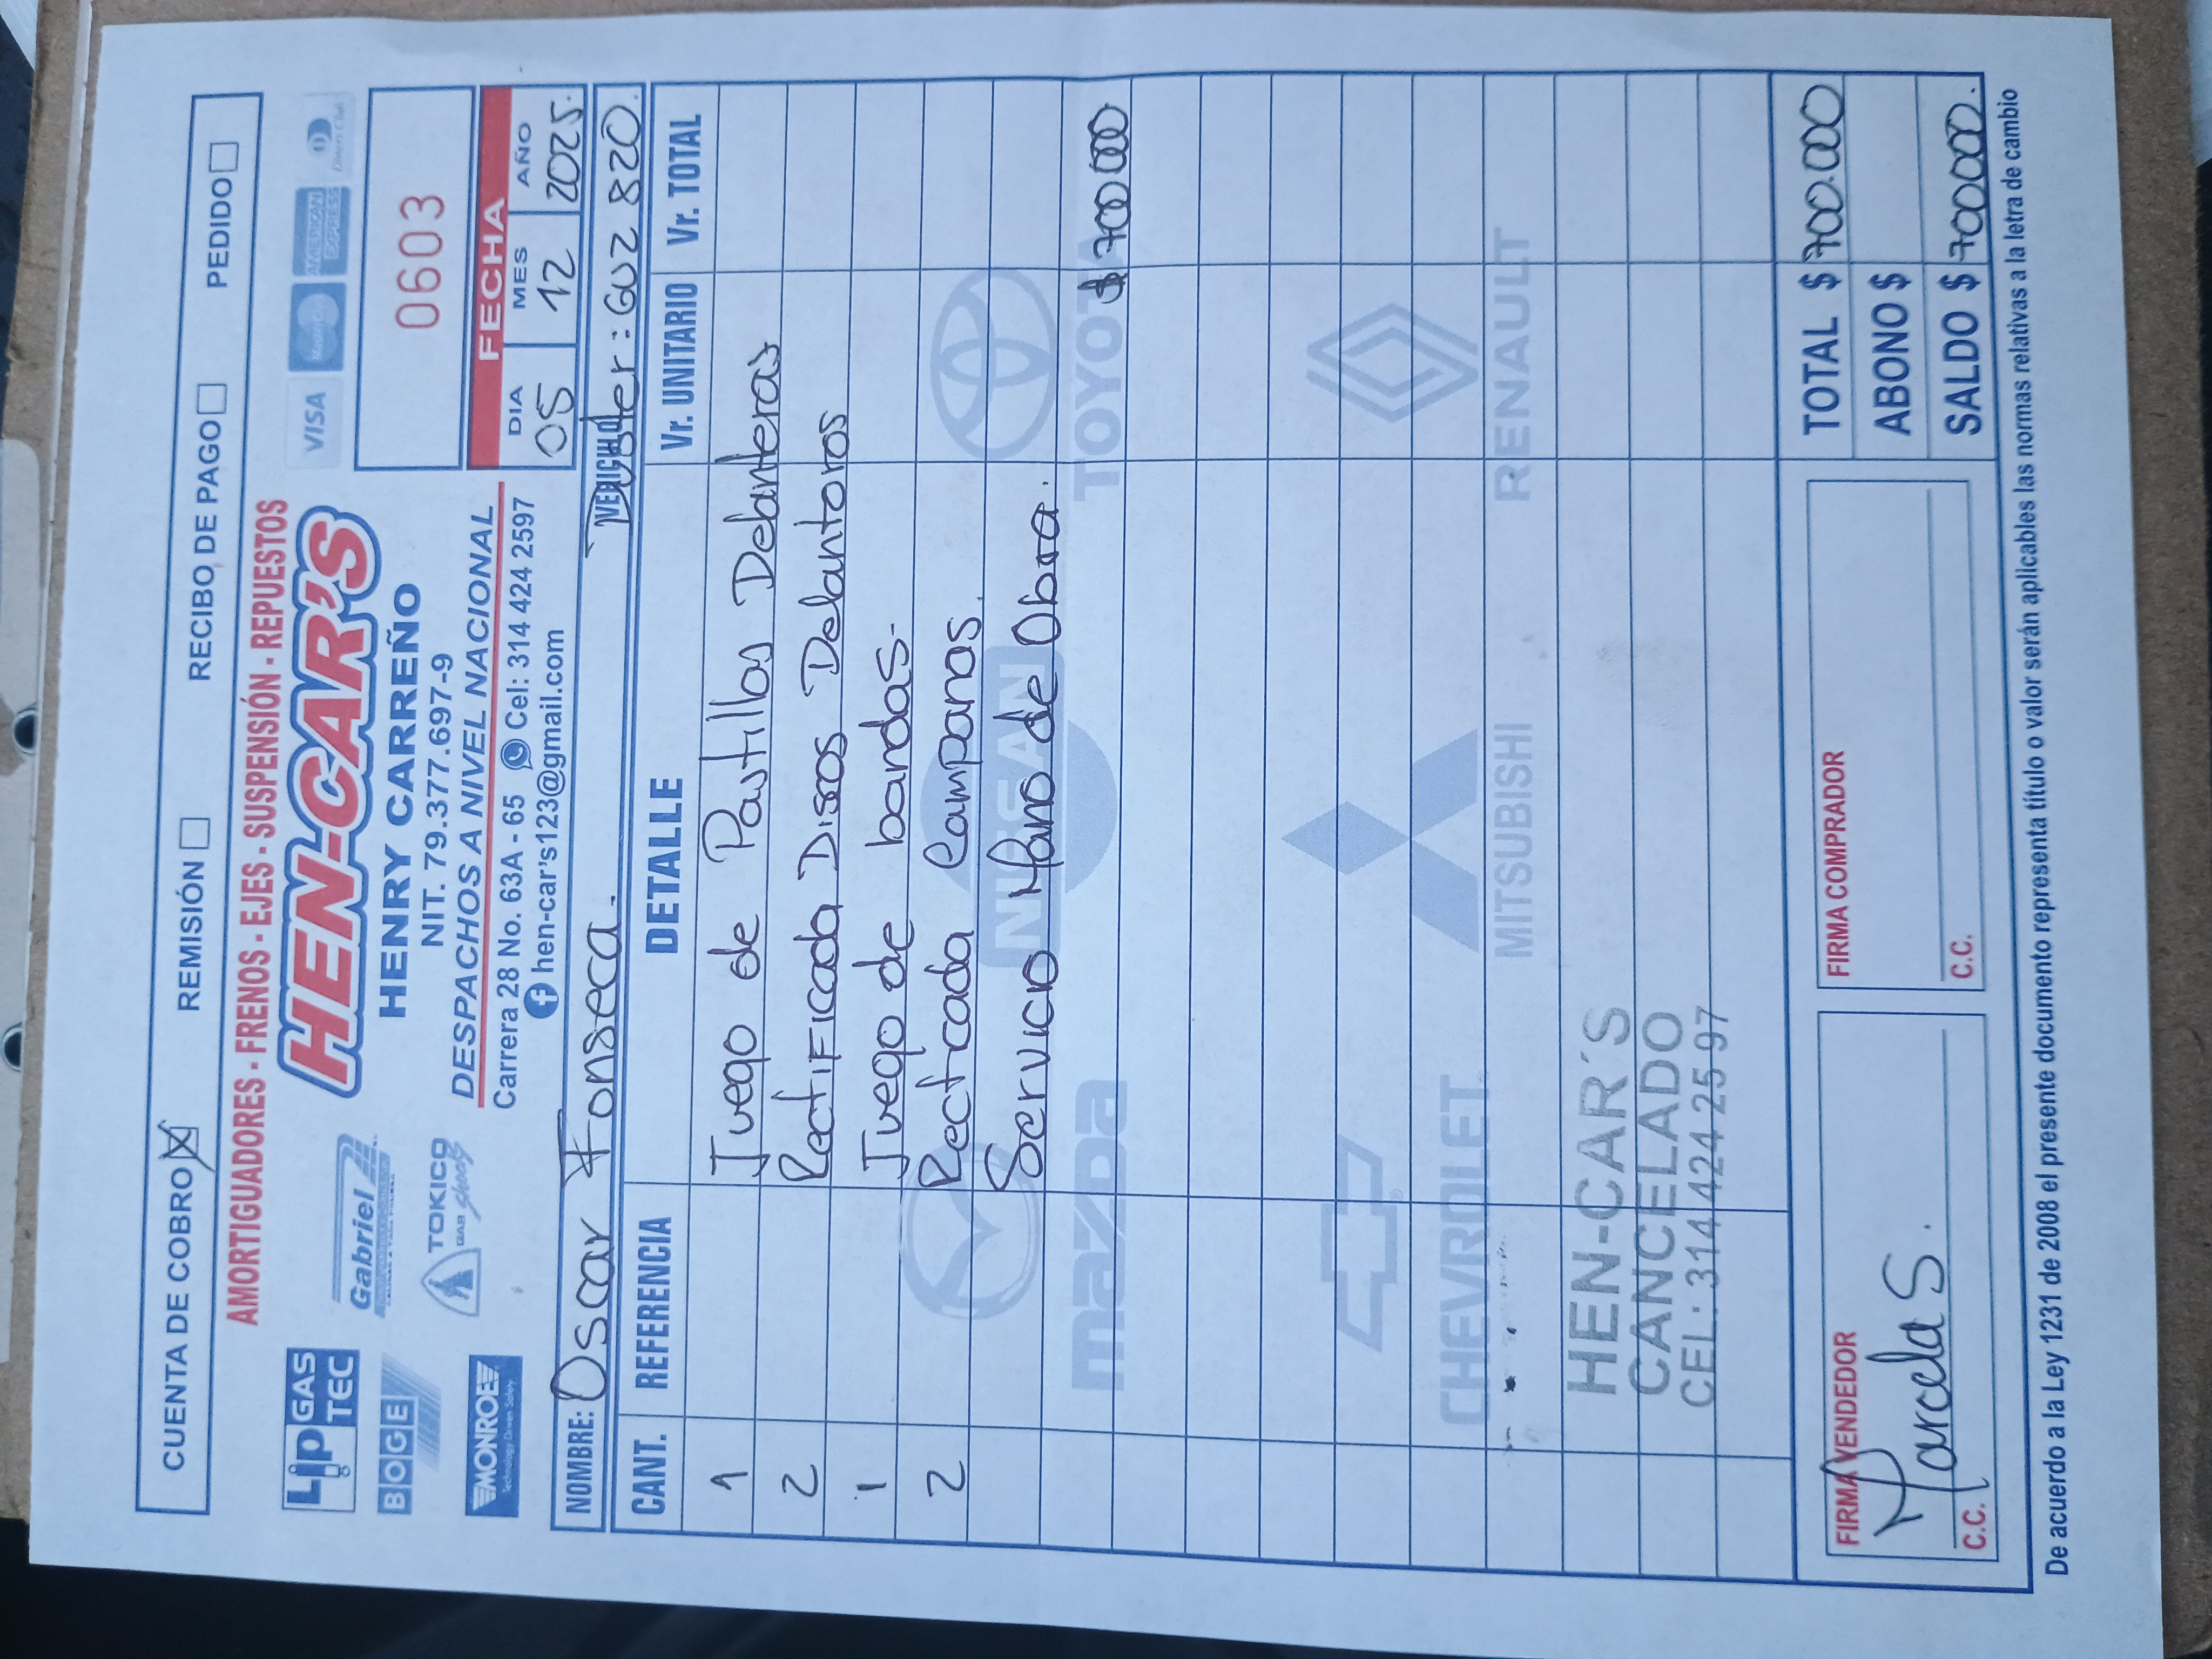 CUENTA DE COBRO REMISIÓN RECIBO DE PAGO PEDIDO
AMORTIGUADORES - FRENOS - EJES - SUSPENSIÓN - REPUESTOS
Lip GAS TEC
Gabriel
BOGE
TOKICO
MONROE
HEN-CAR'S
HENRY CARREÑO
NIT. 79.377.697-9
DESPACHOS A NIVEL NACIONAL
Carrera 28 No. 63A - 65 Cel: 314 424 2597
hen-car's123@gmail.com
VISA MasterCard AMERICAN EXPRESS Diners Club
0603
FECHA
DIA MES AÑO
05 12 2025.
NOMBRE: Oscar Fonseca. VEHICULO Duster: GUZ 820.
CANT. REFERENCIA DETALLE Vr. UNITARIO Vr. TOTAL
1 Juego de Pastillas Delanteras
2 Rectificada Discos Delanteros
1 Juego de bandas-
2 Recticada Campanas.
Servicio Mano de Obra.
$ 700000
mazda
NISSAN
TOYOTA
CHEVROLET
MITSUBISHI
RENAULT
HEN-CAR'S
CANCELADO
CEL.: 314 424 2597
FIRMA VENDEDOR
Marcela S.
C.C.
FIRMA COMPRADOR
C.C.
TOTAL $ 700.000
ABONO $
SALDO $ 700000.
De acuerdo a la Ley 1231 de 2008 el presente documento representa título o valor serán aplicables las normas relativas a la letra de cambio